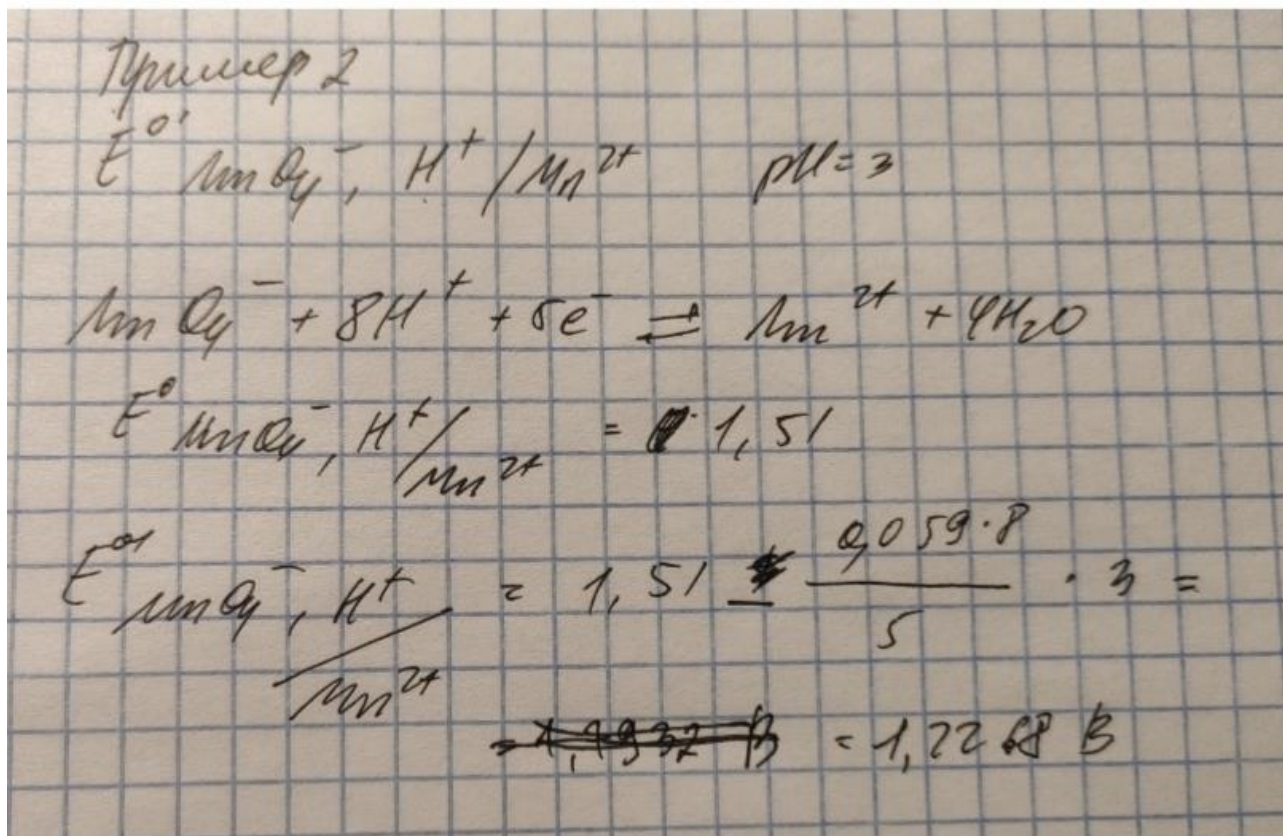 Пример 2
E⁰' MnO₄⁻, H⁺/Mn²⁺ pH=3
MnO₄⁻ + 8H⁺ + 5e⁻ ⇌ Mn²⁺ + 4H₂O
E⁰ MnO₄⁻, H⁺/Mn²⁺ = 1,51
E⁰' MnO₄⁻, H⁺/Mn²⁺ = 1,51 - 0,059·8/5 · 3 =
= 1,2268 В